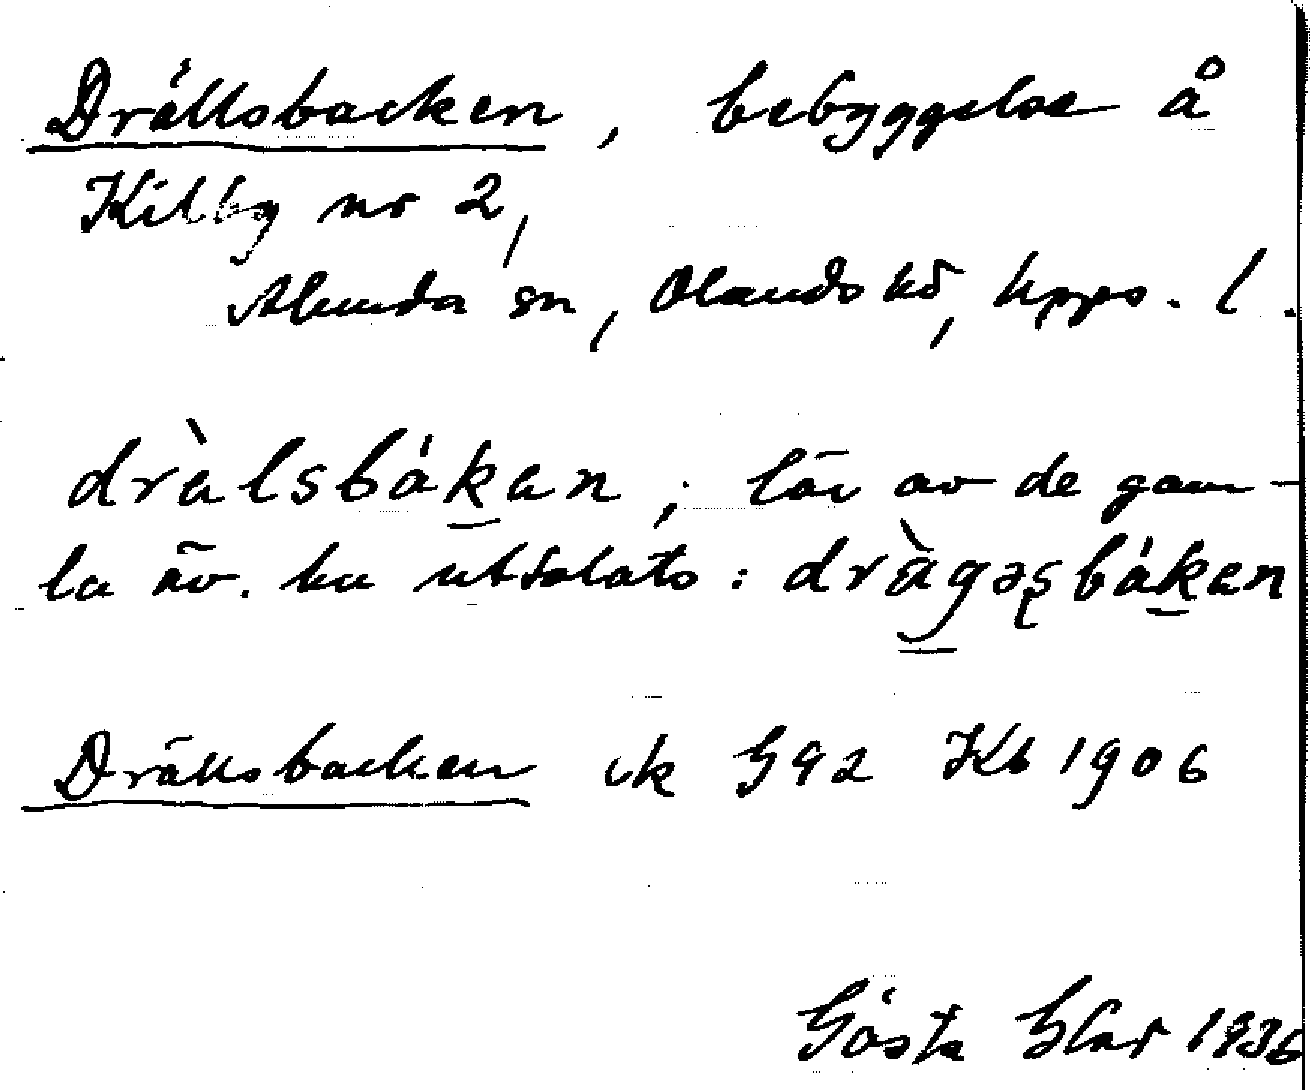 Drällsbacken, bebyggelse å
Kilby nr 2,
Alunda sn, Olands hd, Upps. l.
dràlsbákan; lär av de gam-
la äv. ha uttalats: dràgəsbákan
Drällsbacken ek G92 Kb 1906
Gösta 1936